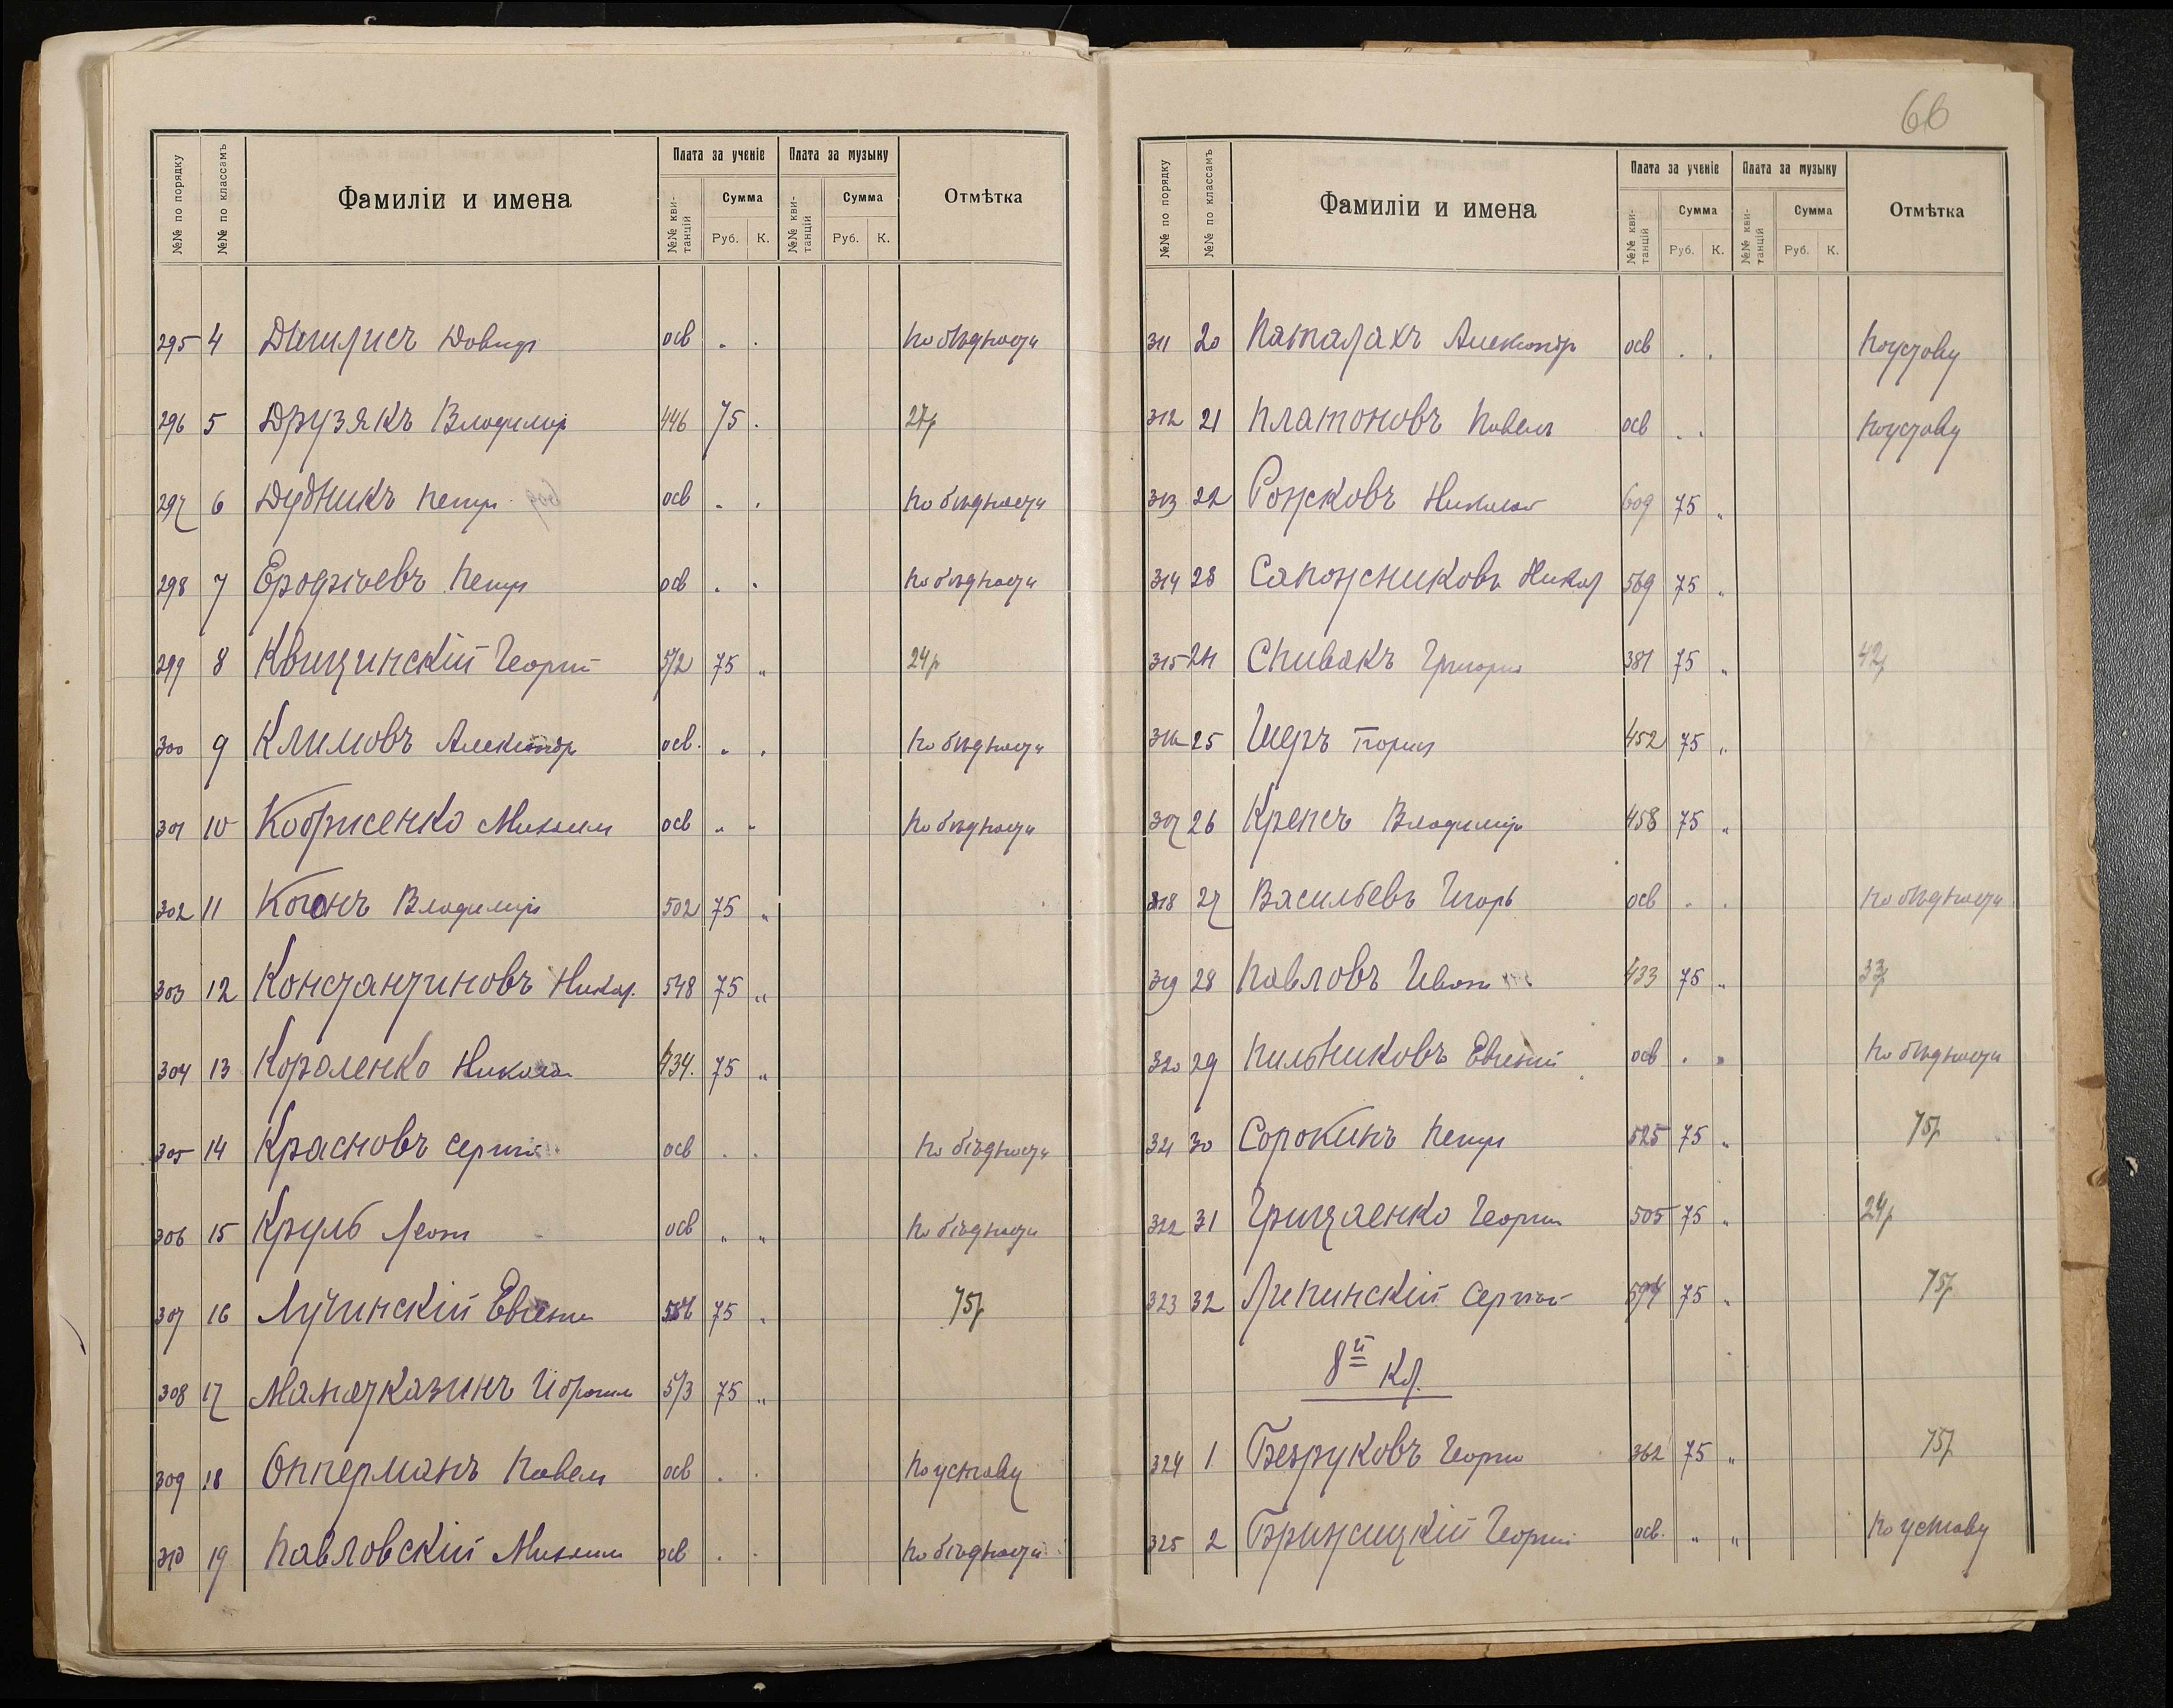 66
№№ по порядку №№ по классамъ Фамиліи и имена Плата за ученіе Плата за музыку Отмѣтка
№№ квитанцій Сумма Руб. К. №№ квитанцій Сумма Руб. К.
295 4 осв . . По бѣдности
296 5 Друзякъ Владиміръ 446 75 .
297 6 Дудникъ Петръ осв . . По бѣдности
298 7 Ерофѣевъ Петръ осв . . По бѣдности
299 8 Квицинскій Георгій 512 75 „ 24р
300 9 Климовъ Александръ осв. „ . По бѣдности
301 10 Михаилъ осв „ „ По бѣдности
302 11 Коганъ Владиміръ 502 75 „
303 12 Константиновъ Никол. 548 75 „
304 13 Короленко Николай 434. 75 „
305 14 Красновъ Сергѣй осв . . По бѣдности
306 15 Круль Леонъ осв „ „ По бѣдности
307 16 Лучинскій Евгеній 75 . 75р
308 17 513 75 „
309 18 Опперманъ Павелъ осв . . По уставу
310 19 Павловскій Михаилъ осв . . По бѣдности
№№ по порядку №№ по классамъ Фамиліи и имена Плата за ученіе Плата за музыку Отмѣтка
№№ квитанцій Сумма Руб. К. №№ квитанцій Сумма Руб. К.
311 20 Паталахъ Александръ осв . . По уставу
312 21 Платоновъ Павелъ осв . . По уставу
313 22 Рожковъ Николай 609 75 „
314 23 Сапожниковъ Никол 569 75 „
315 24 Спивакъ Григорій 381 75 „ 42р
316 25 452 75 „
317 26 Крепсъ Владиміръ 458 75 „
318 27 Васильевъ Игорь осв . . По бѣдности
319 28 Павловъ Иванъ 433 75 „ 33р
320 29 Пильниковъ Евгеній осв . „ По бѣдности
321 30 Сорокинъ Петръ 525 75 „ 75р
322 31 Грицаенко Георгій 505 75 „ 24р
323 32 Липинскій Сергѣй 594 75 „ 75р
8й Кл.
324 1 Безруковъ Георгій 362 75 „ 75р
325 2 Бржицкій Георгій осв. „ „ По уставу